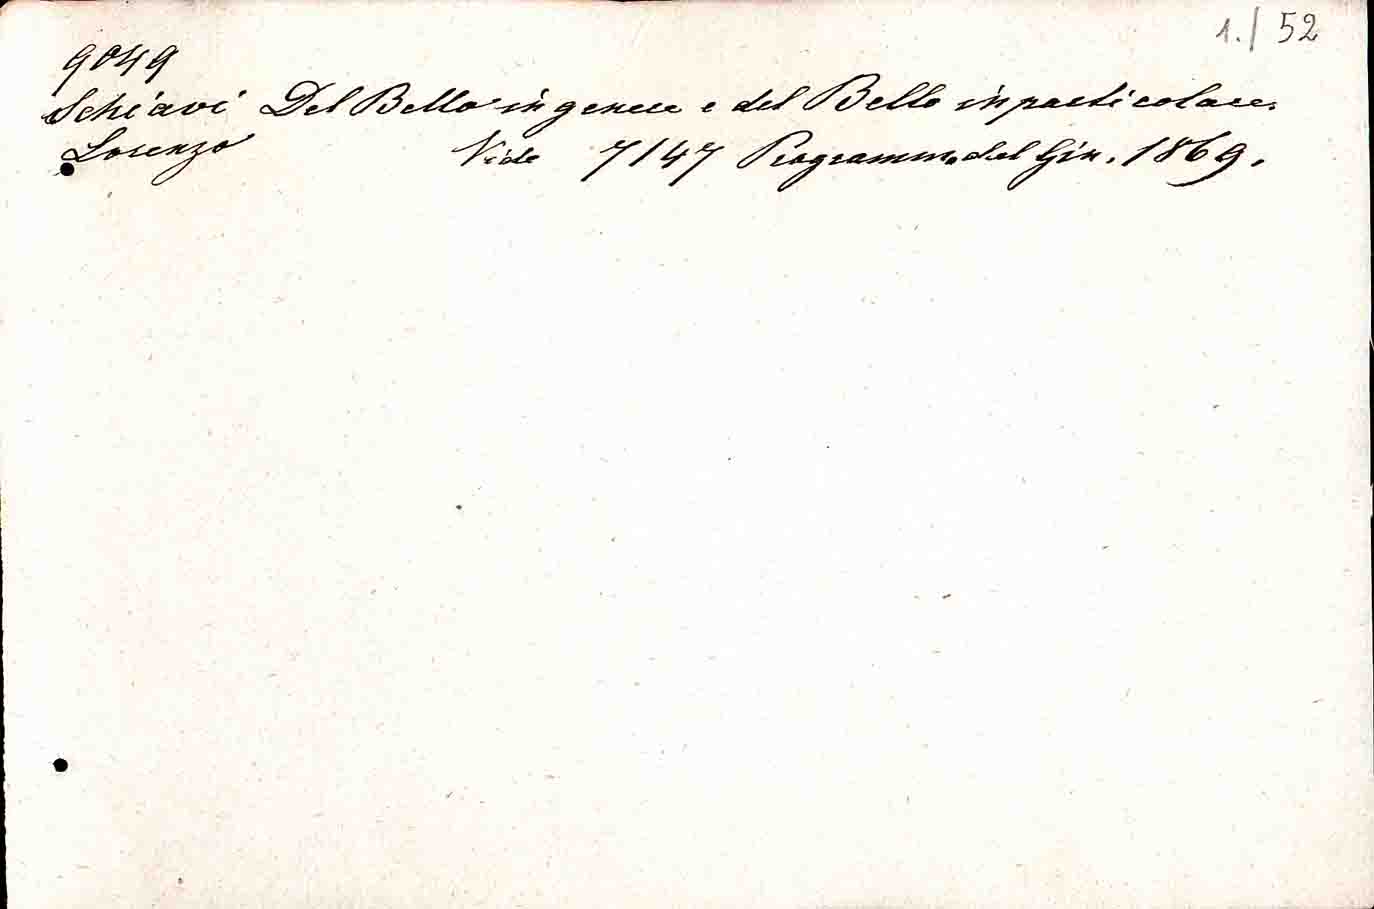 1./52
9049
Schiavi Del Bello in genere e del Bello in particolare.
Lorenzo Vide 7147 Programma del Gin. 1869.